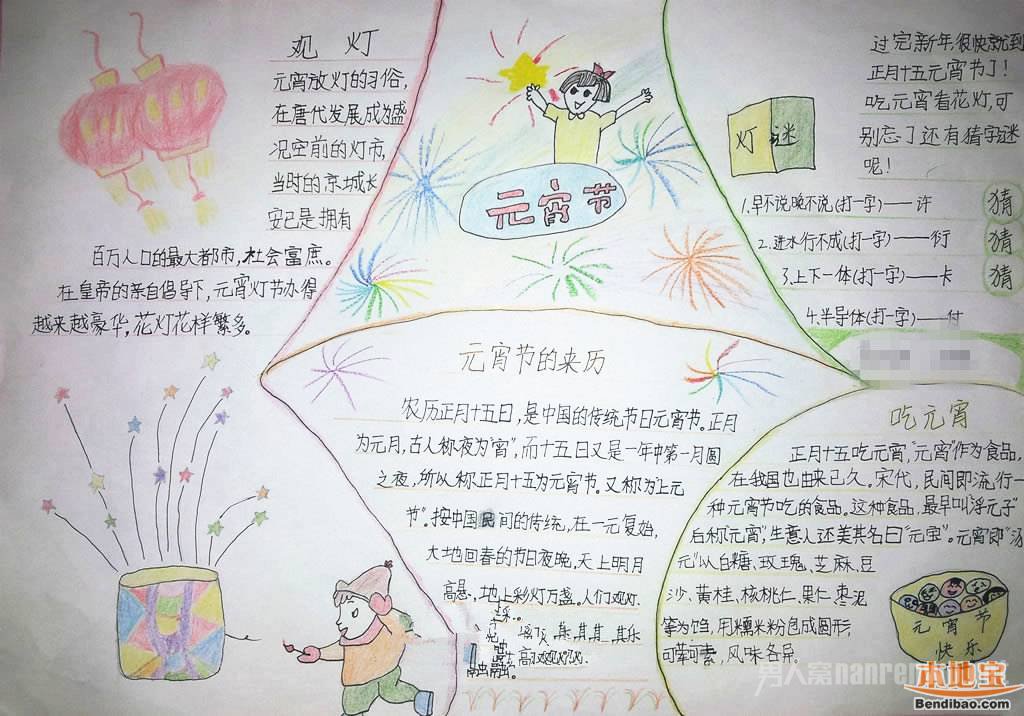 观 灯
元宵放灯的习俗,
在唐代发展成为盛
况空前的灯市,
当时的京城长
安已是拥有
百万人口的最大都市,社会富庶。
在皇帝的亲自倡导下,元宵灯节办得
越来越豪华,花灯花样繁多。
元宵节
过完新年,很快就到
正月十五元宵节了!
吃元宵看花灯,可
别忘了还有猜字谜
呢!
灯谜
1.早不说晚不说(打一字)——许
猜
2.进水行不成(打一字)——衍
猜
3.上下一体(打一字)——卡
猜
4.半导体(打一字)——付
元宵节的来历
农历正月十五日,是中国的传统节日元宵节。正月
为元月,古人称夜为"宵",而十五日又是一年中第一月圆
之夜,所以称正月十五为元宵节。又称为"上元
节"。按中国民间的传统,在一元复始,
大地回春的节日夜晚,天上明月
高悬,地上彩灯万盏。人们观灯、
其乐
融融。
吃元宵
正月十五吃元宵,"元宵"作为食品,
在我国也由来已久,宋代,民间即流行一
种元宵节吃的食品。这种食品,最早叫"浮元子"
后称"元宵",生意人还美其名曰"元宝"。元宵即"汤
元"以白糖、玫瑰、芝麻、豆
沙、黄桂、核桃仁、果仁、枣泥
等为馅,用糯米粉包成圆形,
可荤可素,风味各异。
元宵节
快乐
男人窝nanren
本地宝
Bendibao.com